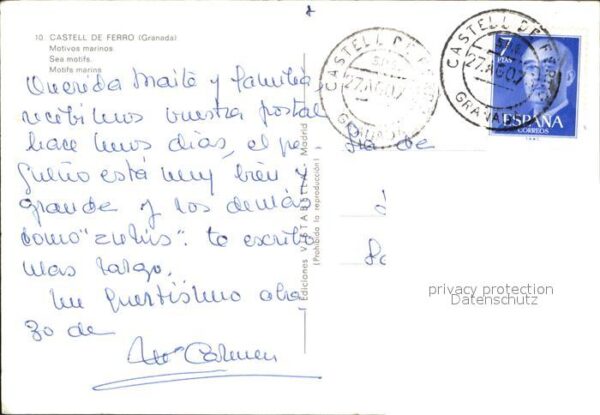 10 CASTELL DE FERRO (Granada)
Motivos marinos.
Sea motifs.
Motifs marins
Querida Maite y familia
recibimos vuestra postal
hace unos días, el pe-
queño está muy bien y
grande y los demás
como " ". te escribo
mas largo.
Un fuertísimo abra-
zo de
Mª Carmen
Ediciones VISTABELLA. Madrid
(Prohibida la reproducción)
CASTELL DE FERRO
27.AGO.7
GRANADA
CASTELL DE FERRO
27.AGO.7
GRANADA
7
PTAS
ESPAÑA
CORREOS
de
privacy protection
Datenschutz